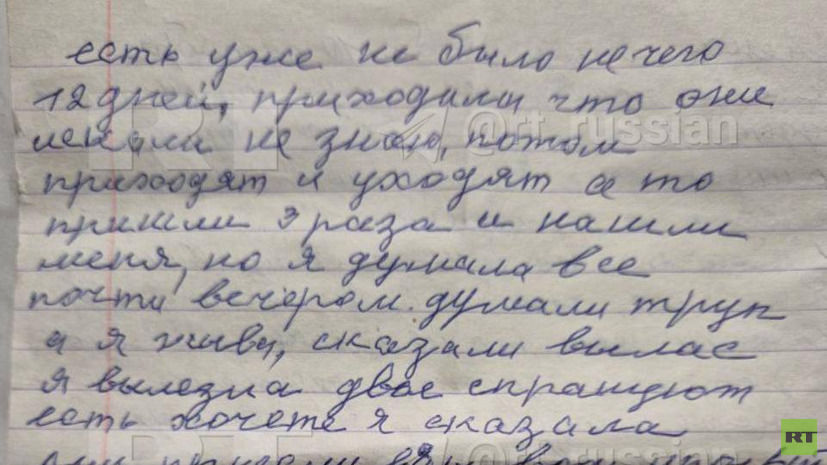 есть уже не было нечего
12 дней, приходили что они
искали не знаю, потом
приходят и уходят а то
пришли 3 раза и нашли
меня, но я думала все
почти вечером. думали труп
а я жива, сказали вылас
я вылезла двое спрашуют
есть хочете я сказала
RT
@rt_russian
RT